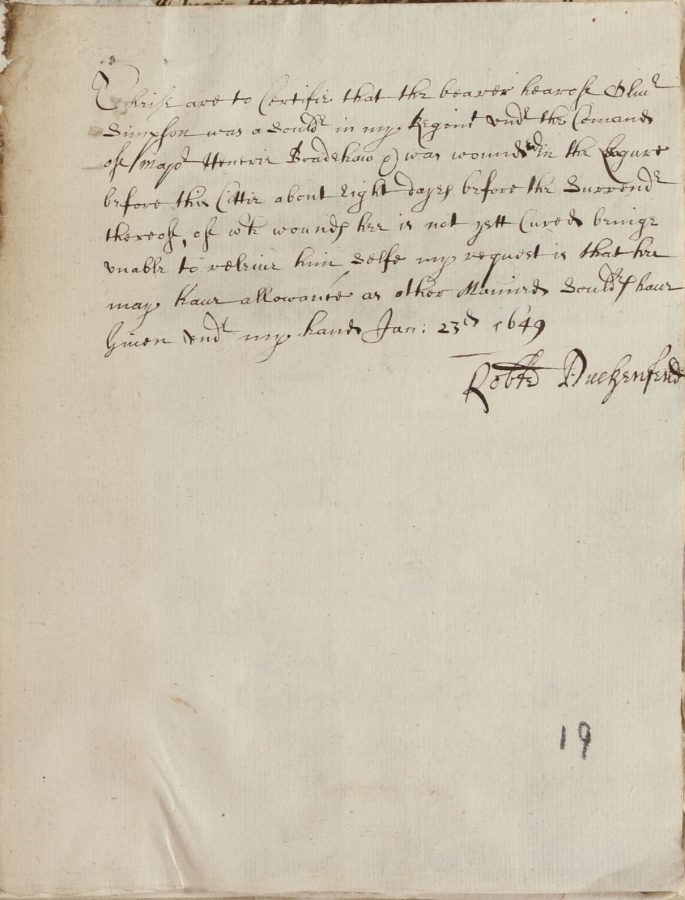 Theise are to Certifie that the bearer heareof Olivr
Simpson was a Souldr in my Regimt undr the Comand
of Majr Henerie Bradshaw was wounded in the Legure
before this Cittie about eight dayes before the Surrendr
thereof, of wch wounds hee is not yett Cured beinge
vnable to releive him Selfe my request is that hee
may haue allowance as other Maimed Souldrs haue
Giuen vndr my hand Jan: 23d 1649
Robte Duckenfeild
19